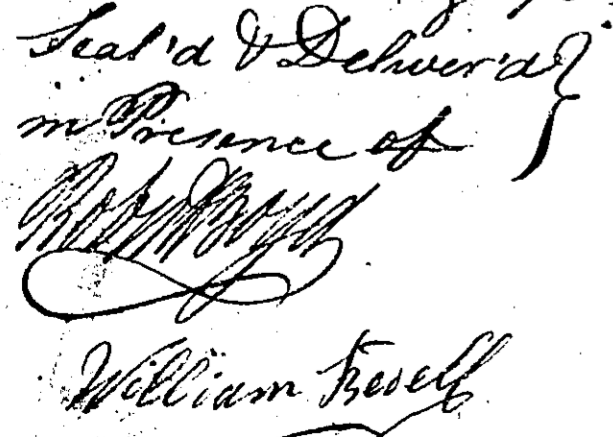 Seal'd & Deliver'd
in Presence of
Robt Boyd
William Revell